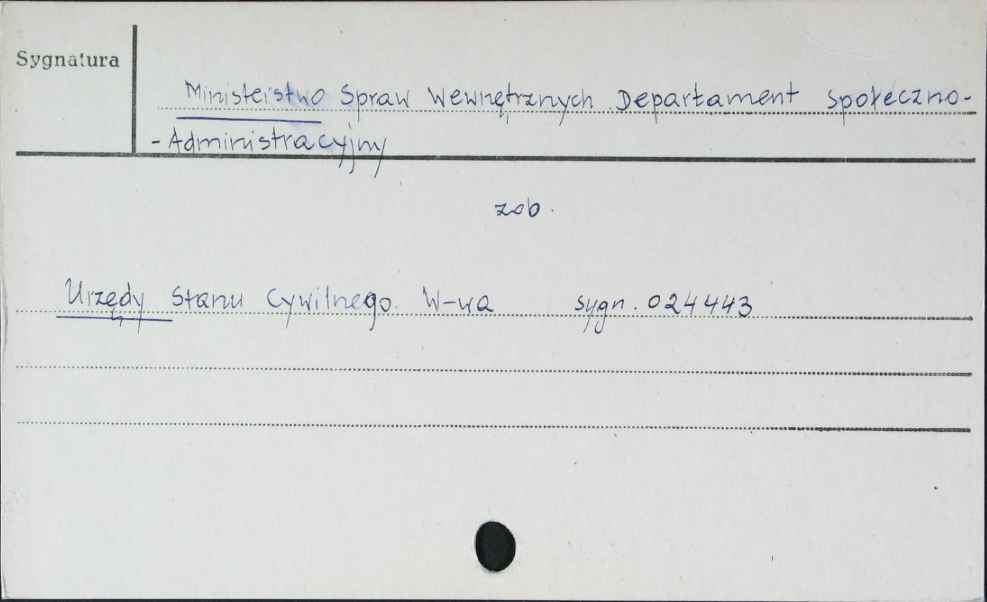 Sygnatura
Ministerstwo Spraw Wewnętrznych Departament Społeczno-
-Administracyjny
zob.
Urzędy Stanu Cywilnego. W-wa sygn. 024443